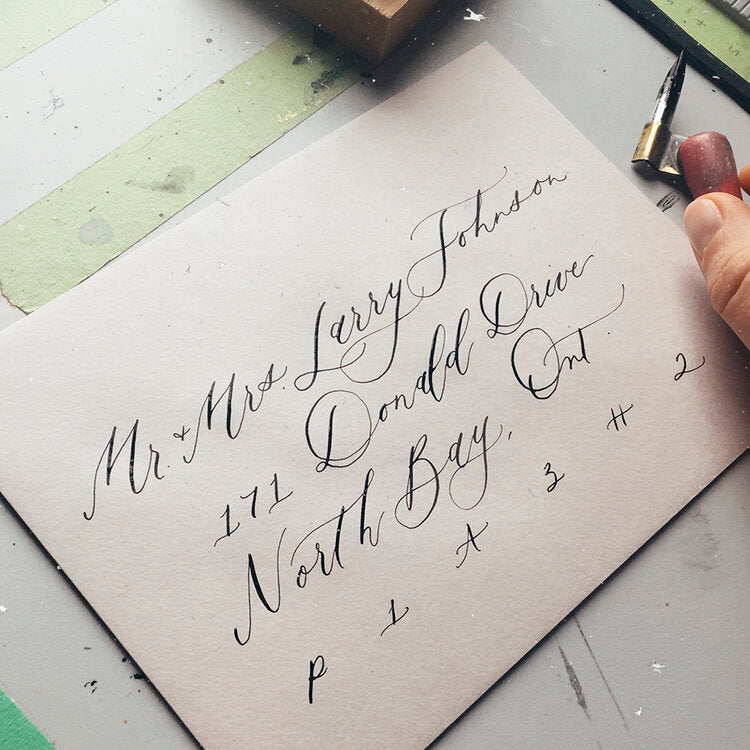 Mr. & Mrs. Larry Johnson
171 Donald Drive
North Bay, Ont.
P 1 A 3 H 2